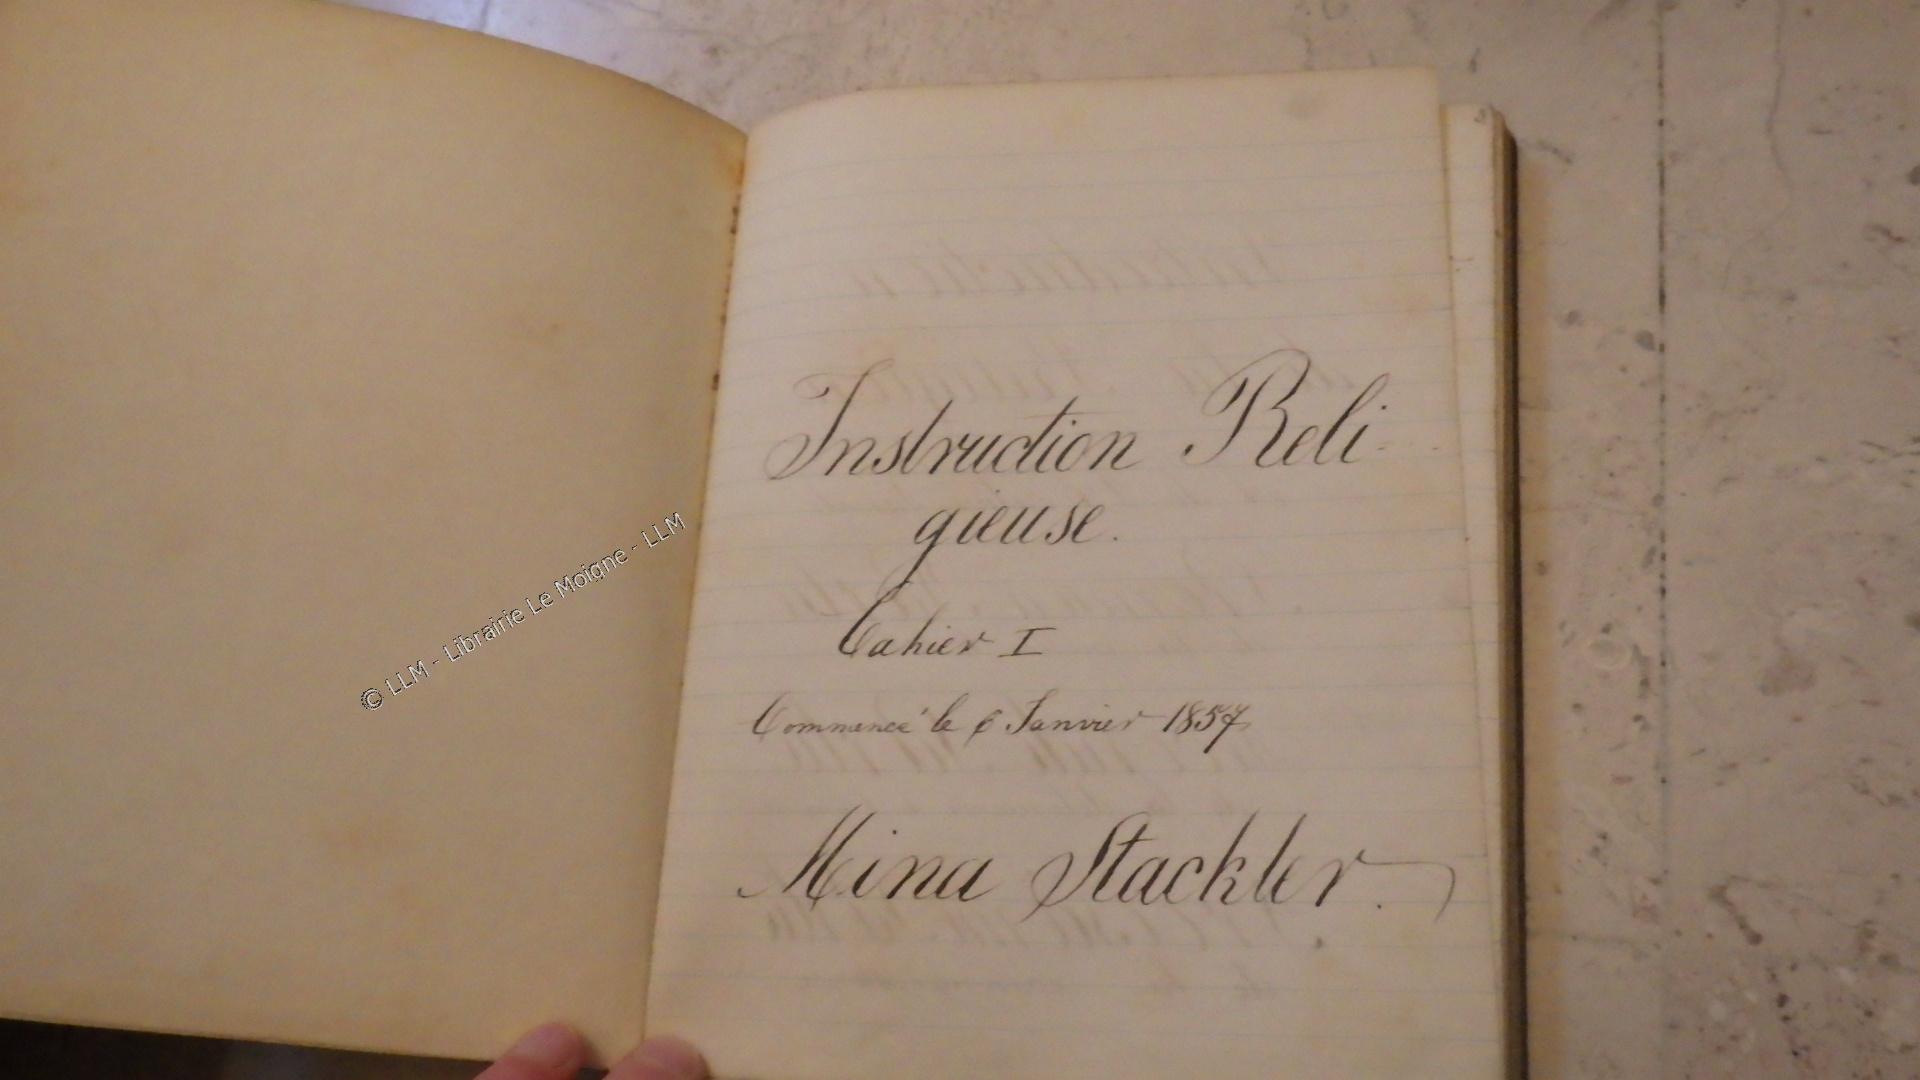 Instruction Reli-
gieuse.
Cahier I
Commencé le 6 Janvier 1857
Mina Stackler.
© LLM - Librairie Le Moigne - LLM